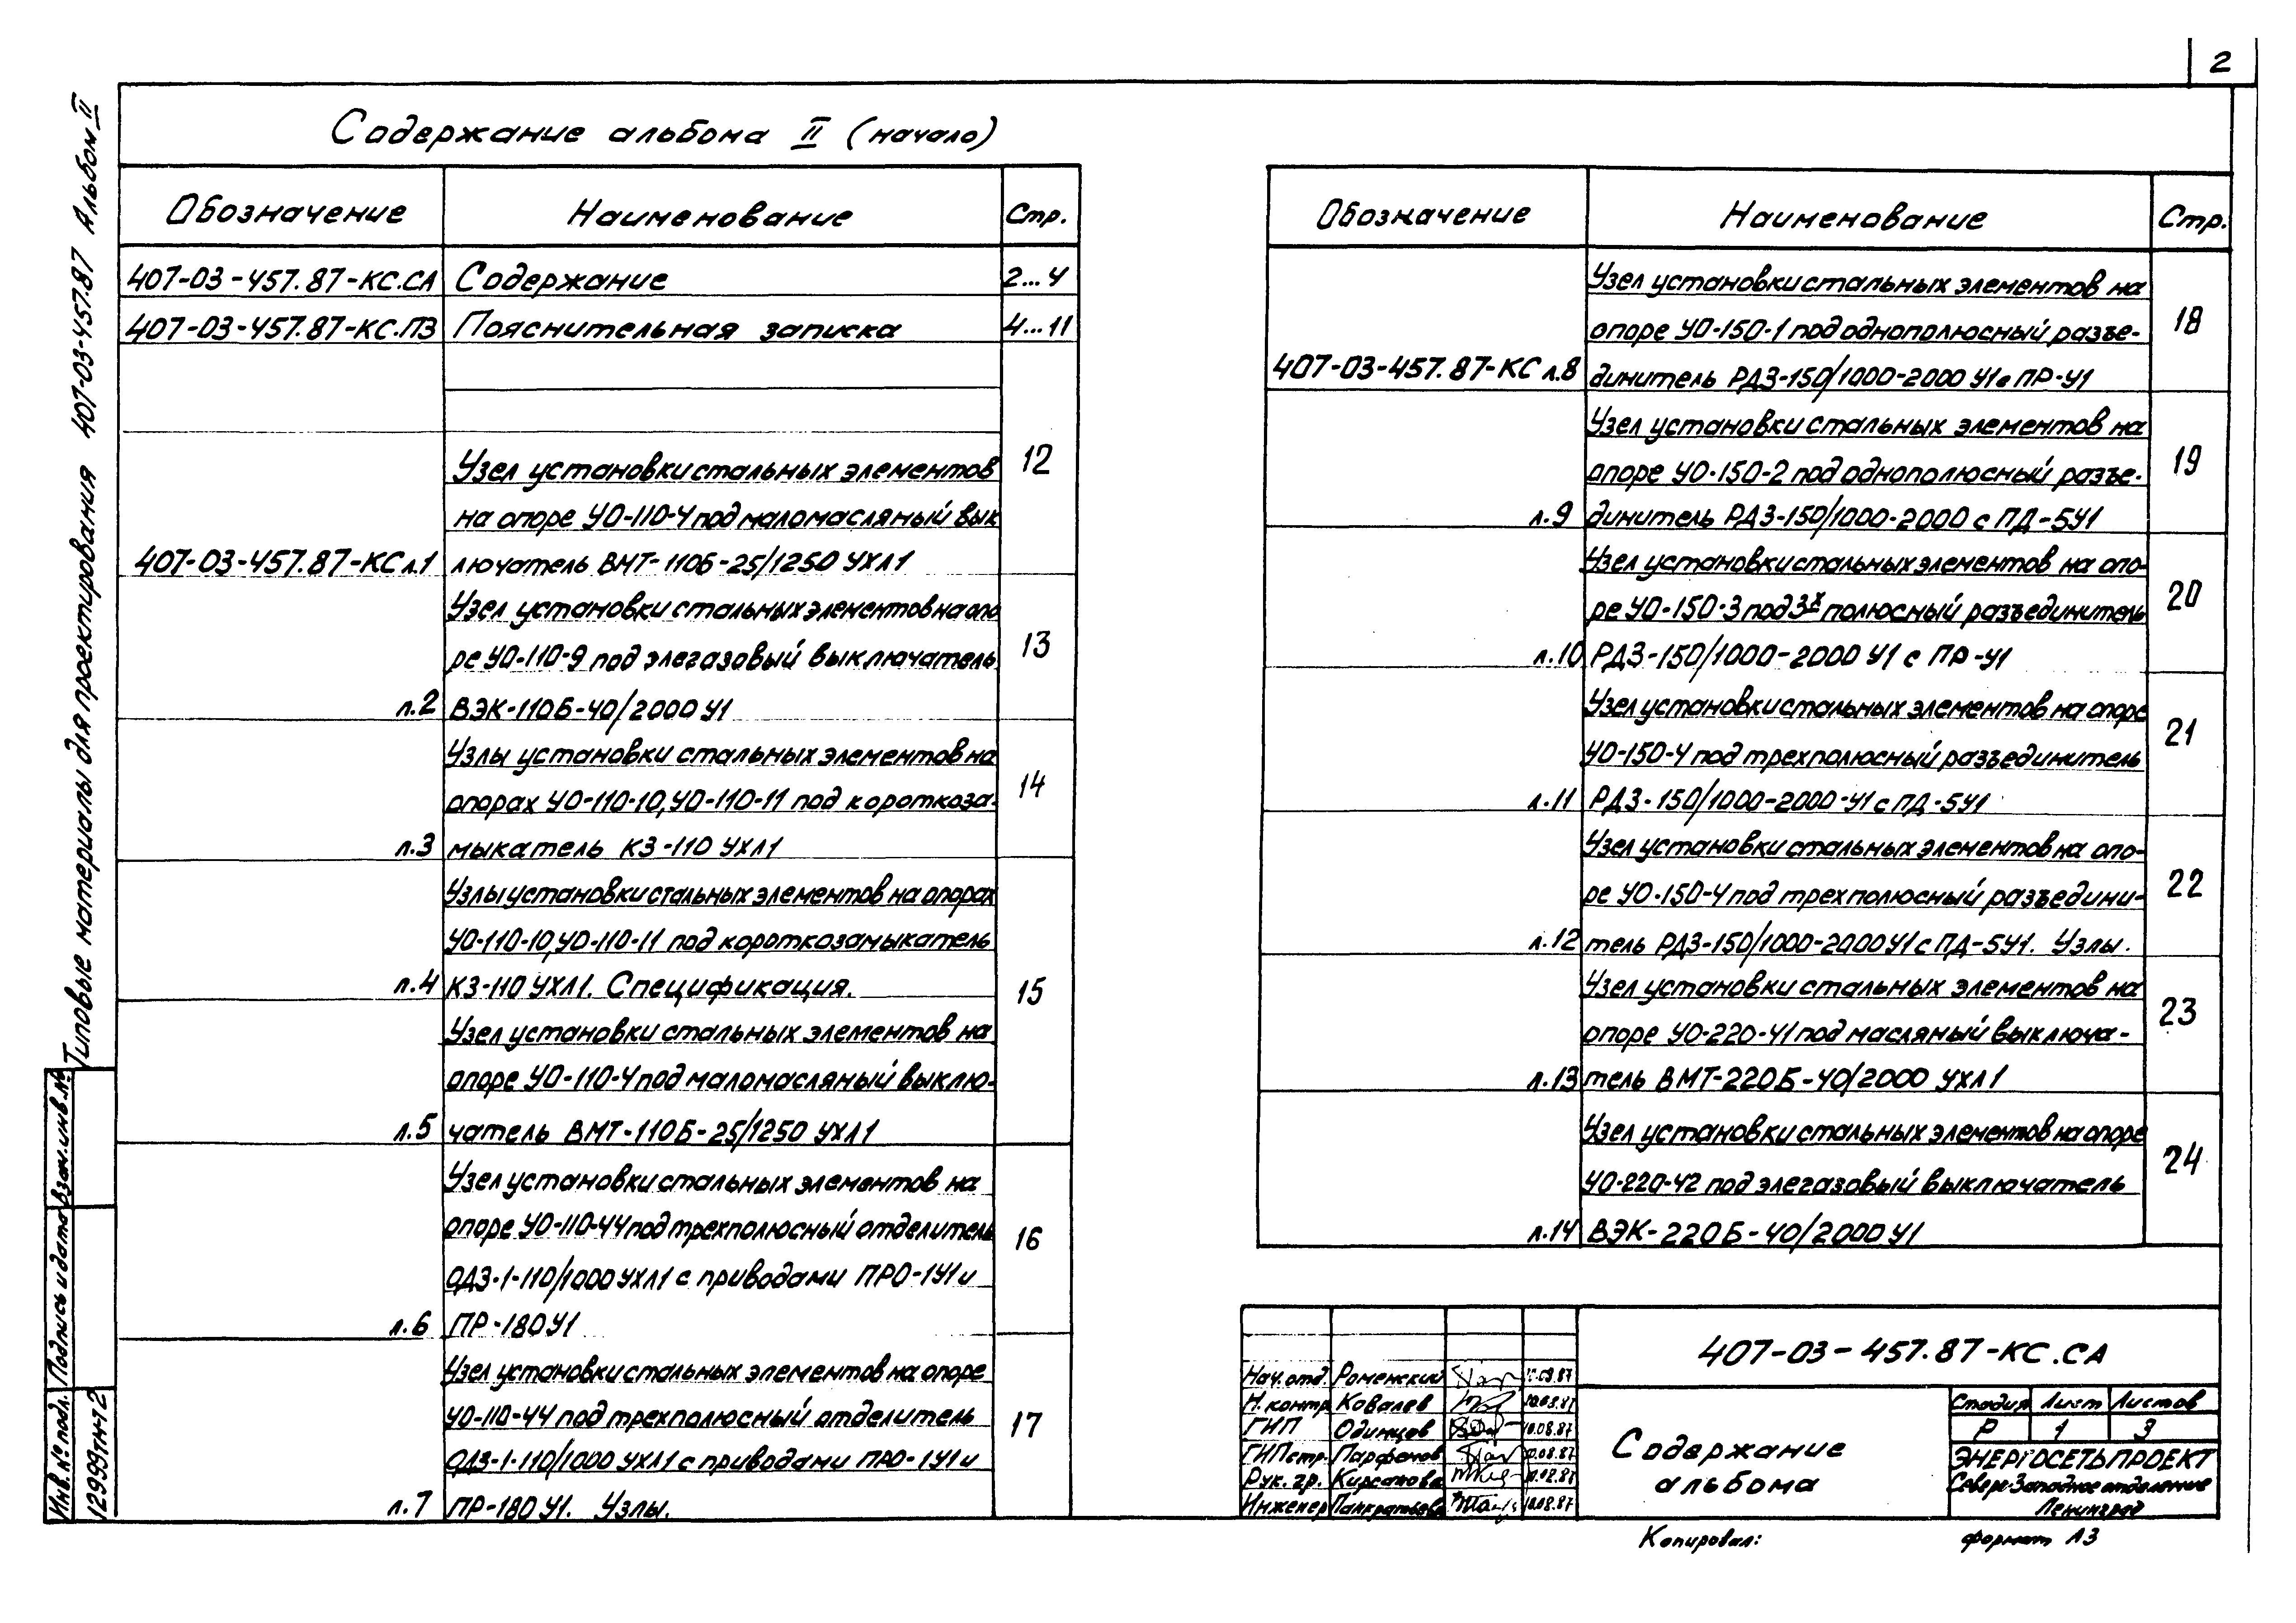 2
Типовые материалы для проектирования 407-03-457.87 Альбом II
Содержание альбома II (начало)
Обозначение Наименование Стр.
407-03-457.87-КС.СА Содержание 2...4
407-03-457.87-КС.ПЗ Пояснительная записка 4...11
Узел установки стальных элементов 12
на опоре УО-110-4 под маломасляный вык
407-03-457.87-КС л.1 лючатель ВМТ-110Б-25/1250 УХЛ1
Узел установки стальных элементов на опо
ре УО-110-9 под элегазовый выключатель 13
л.2 ВЭК-110Б-40/2000 У1
Узлы установки стальных элементов на
опорах УО-110-10, УО-110-11 под короткоза- 14
л.3 мыкатель КЗ-110 УХЛ1
Узлы установки стальных элементов на опорах
УО-110-10, УО-110-11 под короткозамыкатель
л.4 КЗ-110 УХЛ1. Спецификация. 15
Узел установки стальных элементов на
опоре УО-110-4 под маломасляный выклю-
л.5 чатель ВМТ-110Б-25/1250 УХЛ1
Узел установки стальных элементов на
опоре УО-110-44 под трехполюсный отделитель 16
ОДЗ-1-110/1000 УХЛ1 с приводами ПРО-1У1 и
л.6 ПР-180У1
Узел установки стальных элементов на опоре
УО-110-44 под трехполюсный отделитель 17
ОДЗ-1-110/1000 УХЛ1 с приводами ПРО-1У1 и
л.7 ПР-180 У1. Узлы.
Обозначение Наименование Стр.
Узел установки стальных элементов на
опоре УО-150-1 под однополюсный разъе- 18
407-03-457.87-КС л.8 динитель РДЗ-150/1000-2000 У1 с ПР-У1
Узел установки стальных элементов на
опоре УО-150-2 под однополюсный разъе- 19
л.9 динитель РДЗ-150/1000-2000 с ПД-5У1
Узел установки стальных элементов на опо-
ре УО-150-3 под 3х полюсный разъединитель 20
л.10 РДЗ-150/1000-2000 У1 с ПР-У1
Узел установки стальных элементов на опоре
УО-150-4 под трехполюсный разъединитель 21
л.11 РДЗ-150/1000-2000-У1 с ПД-5У1
Узел установки стальных элементов на опо-
ре УО-150-4 под трехполюсный разъедини- 22
л.12 тель РДЗ-150/1000-2000 У1 с ПД-5У1. Узлы.
Узел установки стальных элементов на
опоре УО-220-41 под масляный выключа- 23
л.13 тель ВМТ-220Б-40/2000 УХЛ1
Узел установки стальных элементов на опоре
УО-220-42 под элегазовый выключатель 24
л.14 ВЭК-220Б-40/2000 У1
407-03-457.87-КС.СА
Нач.отд. Роменский
Н.контр Ковалев
ГИП Одинцов 10.08.87
ГИПстр. Парфенов 10.08.87
Рук. гр. Кирсанова 10.08.87
Инженер Панкратьева 10.08.87
Содержание
альбома
Стадия Лист Листов
Р 1 3
ЭНЕРГОСЕТЬПРОЕКТ
Северо-Западное отделение
Ленинград
Копировал: формат А3
Инв.№ подл. Подпись и дата Взам.инв.№
12999тм-т2